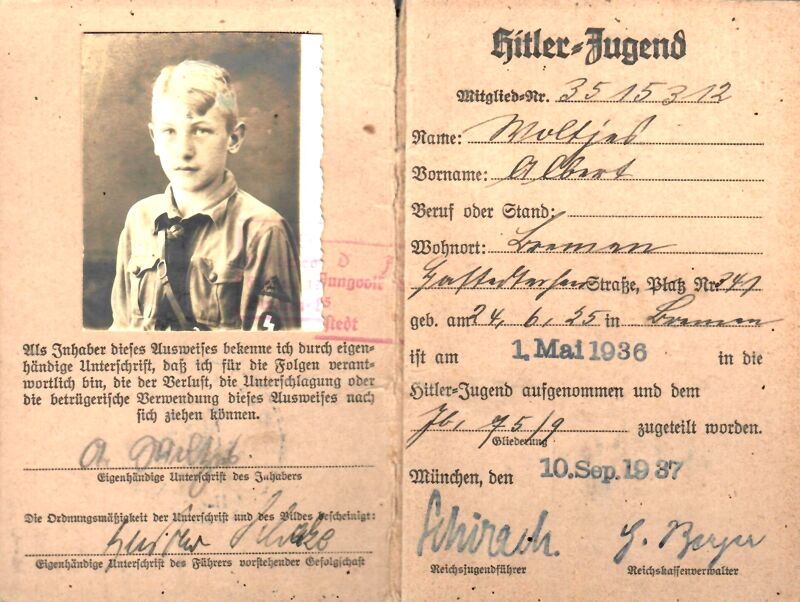 D J
Jungvolk
stedt
Als Inhaber dieses Ausweises bekenne ich durch eigen-
händige Unterschrift, daß ich für die Folgen verant-
wortlich bin, die der Verlust, die Unterschlagung oder
die betrügerische Verwendung dieses Ausweises nach
sich ziehen können.
A. Woltjes
Eigenhändige Unterschrift des Inhabers
Die Ordnungsmäßigkeit der Unterschrift und des Bildes bescheinigt:
Eigenhändige Unterschrift des Führers vorstehender Gefolgschaft
Hitler-Jugend
Mitglied-Nr. 3515312
Name: Woltjes
Vorname: Albert
Beruf oder Stand:
Wohnort: Bremen
Hastedterheer Straße, Platz Nr. 341
geb. am 24. 6. 25 in Bremen
ist am 1. Mai 1936 in die
Hitler-Jugend aufgenommen und dem
Jb. 75/9 zugeteilt worden.
Gliederung
München, den 10. Sep. 1937
Schirach. G. Berger
Reichsjugendführer Reichskassenverwalter